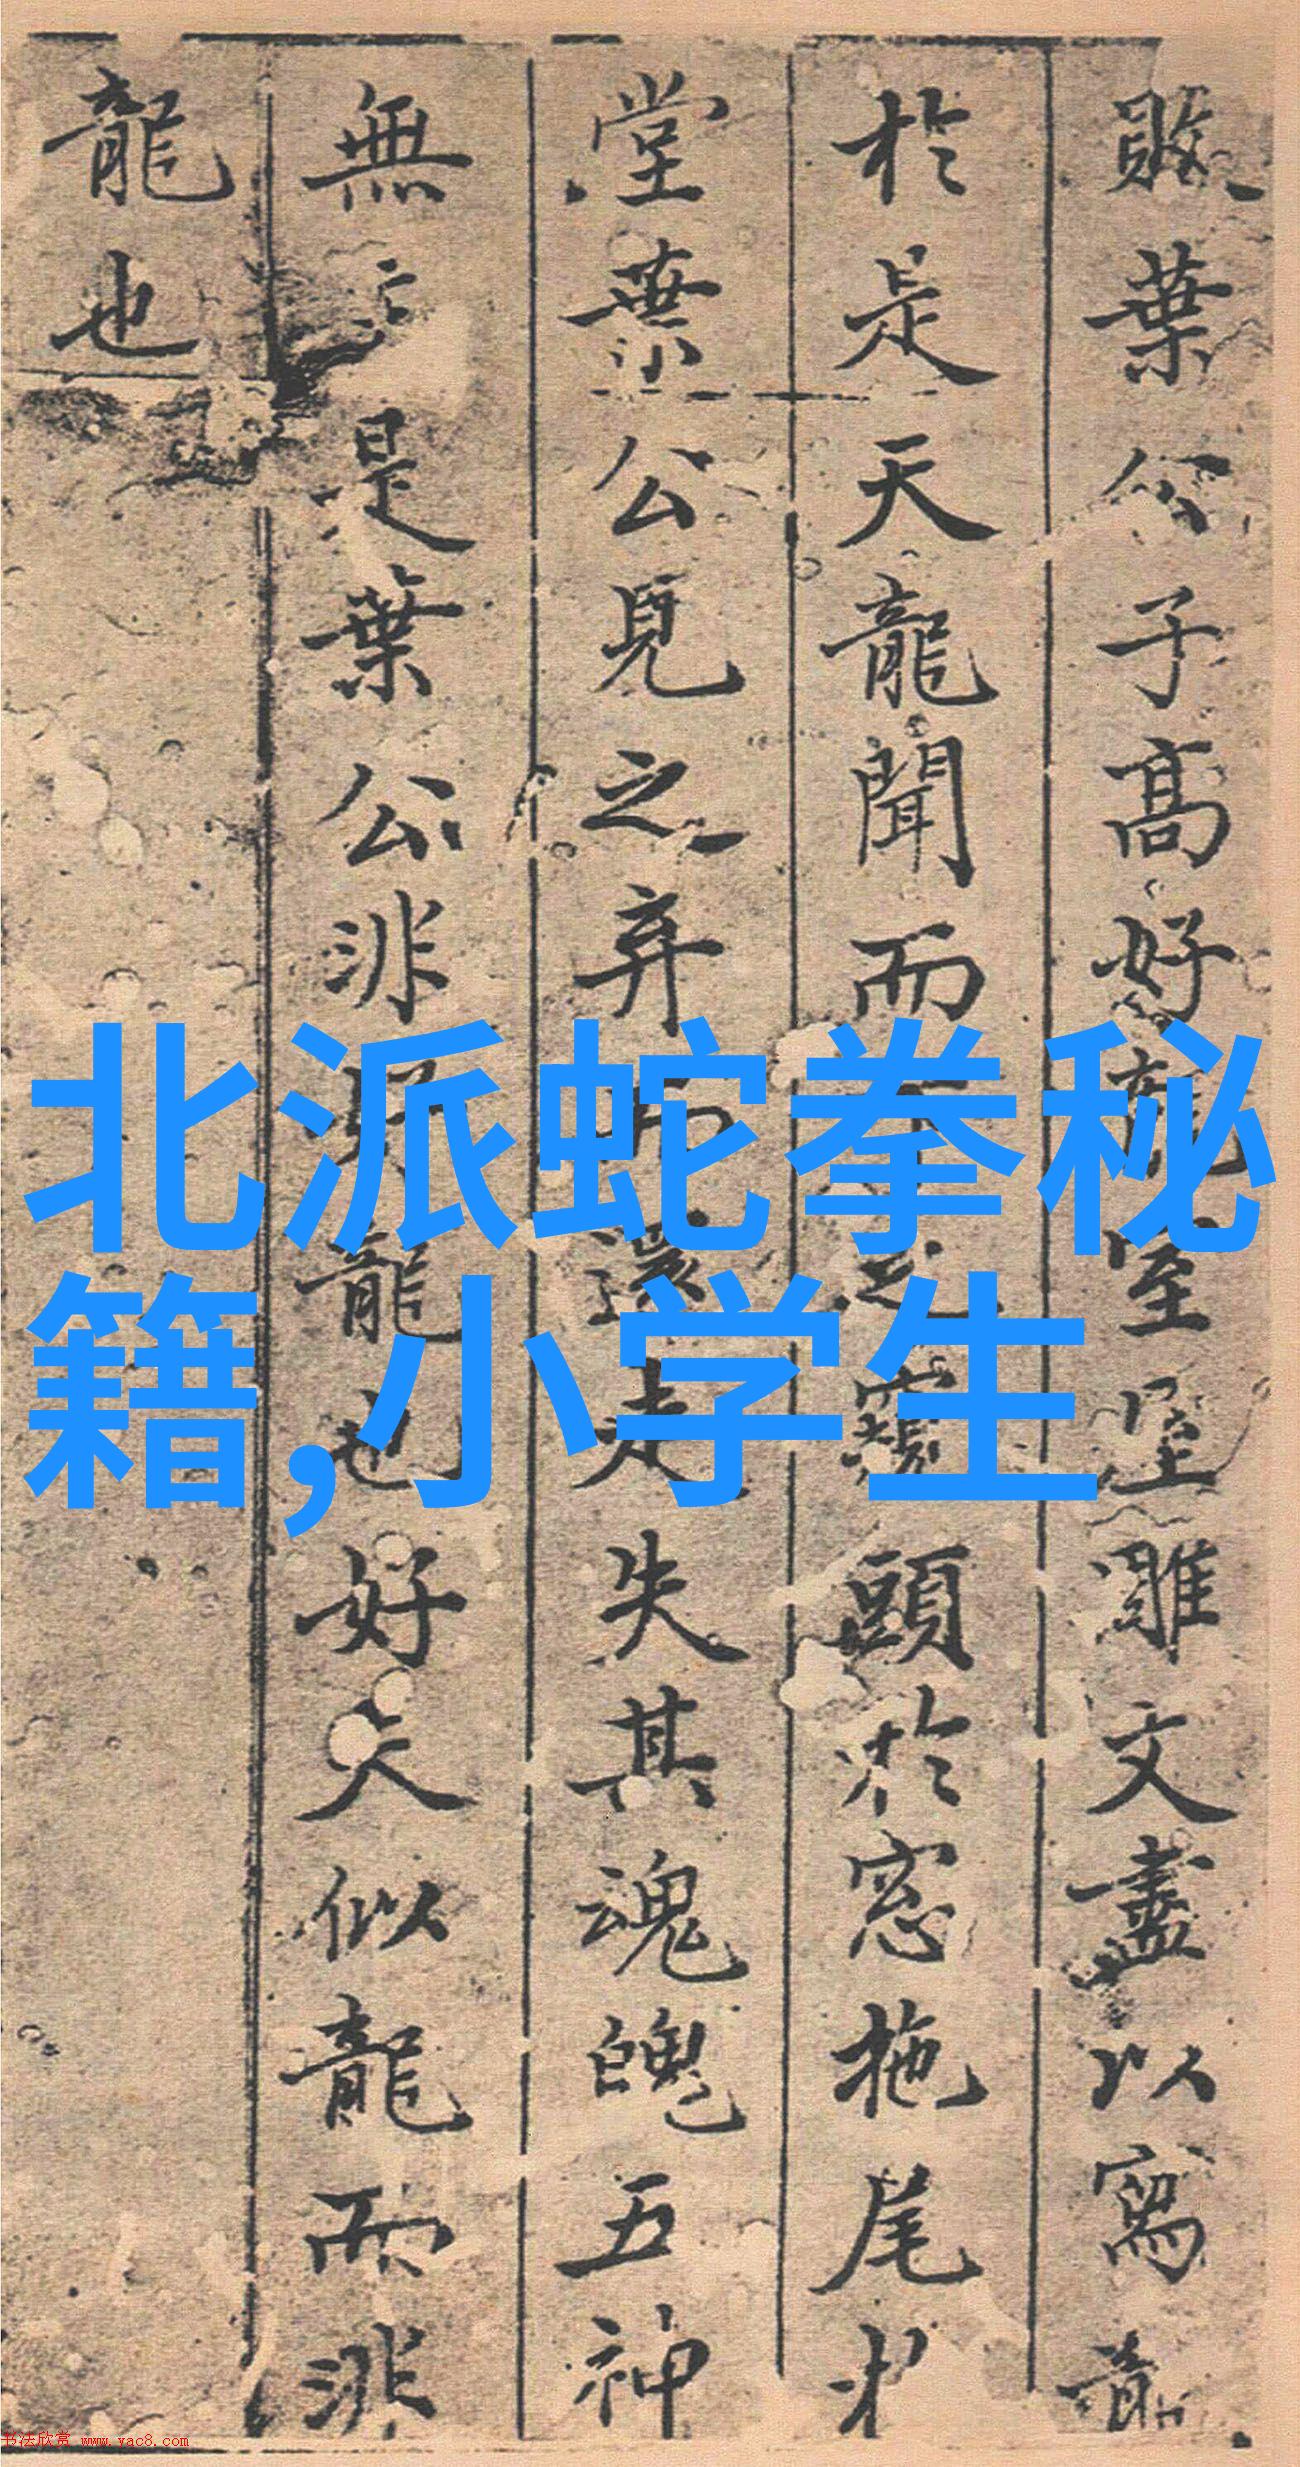 敗葉公子高好龍室屋雕文盡以寫龍
於是天龍聞而下之窺頭於窓拖尾於
堂葉公見之弃而還走失其魂魄五神
無主是葉公非好龍也好夫似龍而非
龍也
北派蛇拳秘
籍,小学生
书法欣赏 www.yac8.com